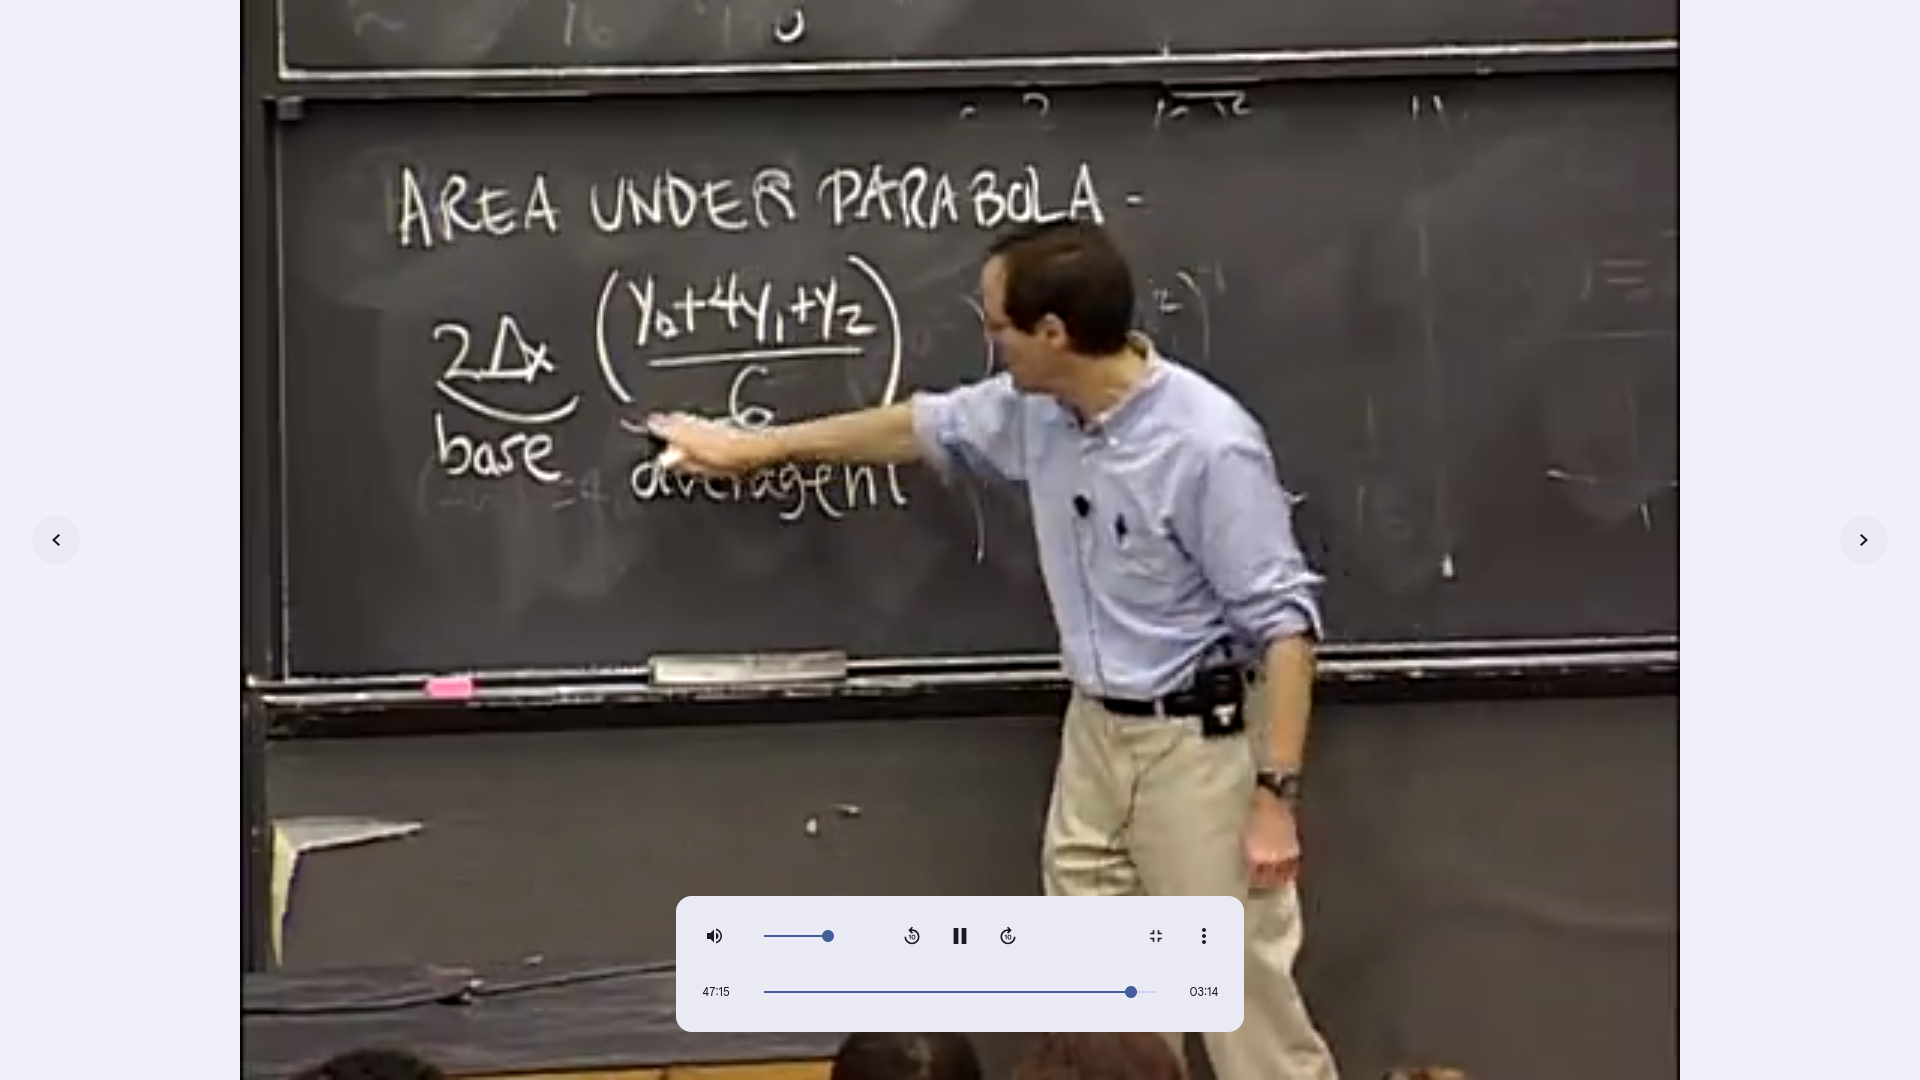 AREA UNDER PARABOLA -
2Δx (y₀+4y₁+y₂)
6
base
47:15 03:14